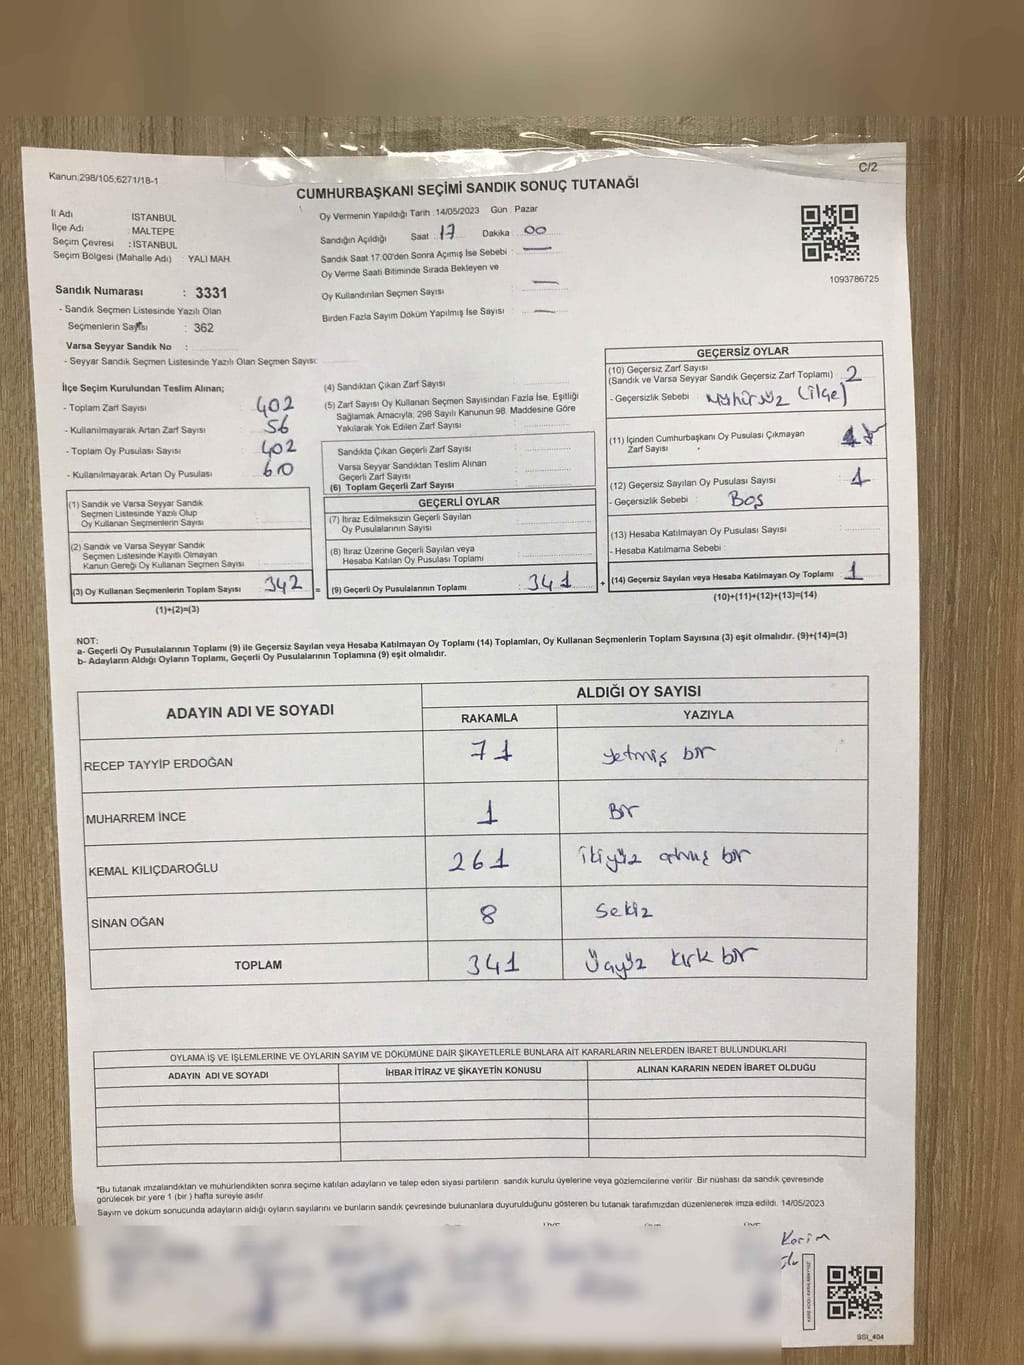 Kanun;298/105,6271/18-1
C/2
CUMHURBAŞKANI SEÇİMİ SANDIK SONUÇ TUTANAĞI
İl Adı İSTANBUL
İlçe Adı : MALTEPE
Seçim Çevresi : İSTANBUL
Seçim Bölgesi (Mahalle Adı) : YALI MAH.
Sandık Numarası : 3331
- Sandık Seçmen Listesinde Yazılı Olan
Seçmenlerin Sayısı : 362
Varsa Seyyar Sandık No :
- Seyyar Sandık Seçmen Listesinde Yazılı Olan Seçmen Sayısı:
Oy Vermenin Yapıldığı Tarih : 14/05/2023 Gün : Pazar
Sandığın Açıldığı Saat : 17 Dakika : 00
Sandık Saat 17.00'den Sonra Açımış İse Sebebi : —
Oy Verme Saati Bitiminde Sırada Bekleyen ve
Oy Kullandırılan Seçmen Sayısı : —
Birden Fazla Sayım Döküm Yapılmış İse Sayısı : —
1093786725
İlçe Seçim Kurulundan Teslim Alınan;
- Toplam Zarf Sayısı : 402
- Kullanılmayarak Artan Zarf Sayısı : 56
- Toplam Oy Pusulası Sayısı : 402
- Kullanılmayarak Artan Oy Pusulası : 60
(1) Sandık ve Varsa Seyyar Sandık
Seçmen Listesinde Yazılı Olup
Oy Kullanan Seçmenlerin Sayısı :
(2) Sandık ve Varsa Seyyar Sandık
Seçmen Listesinde Kayıtlı Olmayan
Kanun Gereği Oy Kullanan Seçmen Sayısı :
(3) Oy Kullanan Seçmenlerin Toplam Sayısı : 342 =
(1)+(2)=(3)
(4) Sandıktan Çıkan Zarf Sayısı :
(5) Zarf Sayısı Oy Kullanan Seçmen Sayısından Fazla İse, Eşitliği
Sağlamak Amacıyla; 298 Sayılı Kanunun 98. Maddesine Göre
Yakılarak Yok Edilen Zarf Sayısı :
Sandıkta Çıkan Geçerli Zarf Sayısı :
Varsa Seyyar Sandıktan Teslim Alınan
Geçerli Zarf Sayısı :
(6) Toplam Geçerli Zarf Sayısı :
GEÇERLİ OYLAR
(7) İtiraz Edilmeksizin Geçerli Sayılan
Oy Pusulalarının Sayısı :
(8) İtiraz Üzerine Geçerli Sayılan veya
Hesaba Katılan Oy Pusulası Toplamı :
(9) Geçerli Oy Pusulalarının Toplamı : 341 +
GEÇERSİZ OYLAR
(10) Geçersiz Zarf Sayısı
(Sandık ve Varsa Seyyar Sandık Geçersiz Zarf Toplamı) : 2
- Geçersizlik Sebebi : Mühürsüz (ilçe)
(11) İçinden Cumhurbaşkanı Oy Pusulası Çıkmayan
Zarf Sayısı :
(12) Geçersiz Sayılan Oy Pusulası Sayısı : 1
- Geçersizlik Sebebi : Boş
(13) Hesaba Katılmayan Oy Pusulası Sayısı :
- Hesaba Katılmama Sebebi :
(14) Geçersiz Sayılan veya Hesaba Katılmayan Oy Toplamı : 1
(10)+(11)+(12)+(13)=(14)
NOT:
a- Geçerli Oy Pusulalarının Toplamı (9) ile Geçersiz Sayılan veya Hesaba Katılmayan Oy Toplamı (14) Toplamları, Oy Kullanan Seçmenlerin Toplam Sayısına (3) eşit olmalıdır. (9)+(14)=(3)
b- Adayların Aldığı Oyların Toplamı, Geçerli Oy Pusulalarının Toplamına (9) eşit olmalıdır.
ADAYIN ADI VE SOYADI ALDIĞI OY SAYISI
RAKAMLA YAZIYLA
RECEP TAYYİP ERDOĞAN 71 yetmiş bir
MUHARREM İNCE 1 Bir
KEMAL KILIÇDAROĞLU 261 ikiyüz atmış bir
SİNAN OĞAN 8 Sekiz
TOPLAM 341 Üçyüz kırk bir
OYLAMA İŞ VE İŞLEMLERİNE VE OYLARIN SAYIM VE DÖKÜMÜNE DAİR ŞİKAYETLERLE BUNLARA AİT KARARLARIN NELERDEN İBARET BULUNDUKLARI
ADAYIN ADI VE SOYADI İHBAR İTİRAZ VE ŞİKAYETİN KONUSU ALINAN KARARIN NEDEN İBARET OLDUĞU
*Bu tutanak imzalandıktan ve mühürlendikten sonra seçime katılan adayların ve talep eden siyasi partilerin sandık kurulu üyelerine veya gözlemcilerine verilir. Bir nüshası da sandık çevresinde
görülecek bir yere 1 (bir) hafta süreyle asılır.
Sayım ve döküm sonucunda adayların aldığı oyların sayılarını ve bunların sandık çevresinde bulunanlara duyurulduğunu gösteren bu tutanak tarafımızdan düzenlenerek imza edildi. 14/05/2023
SSI_404